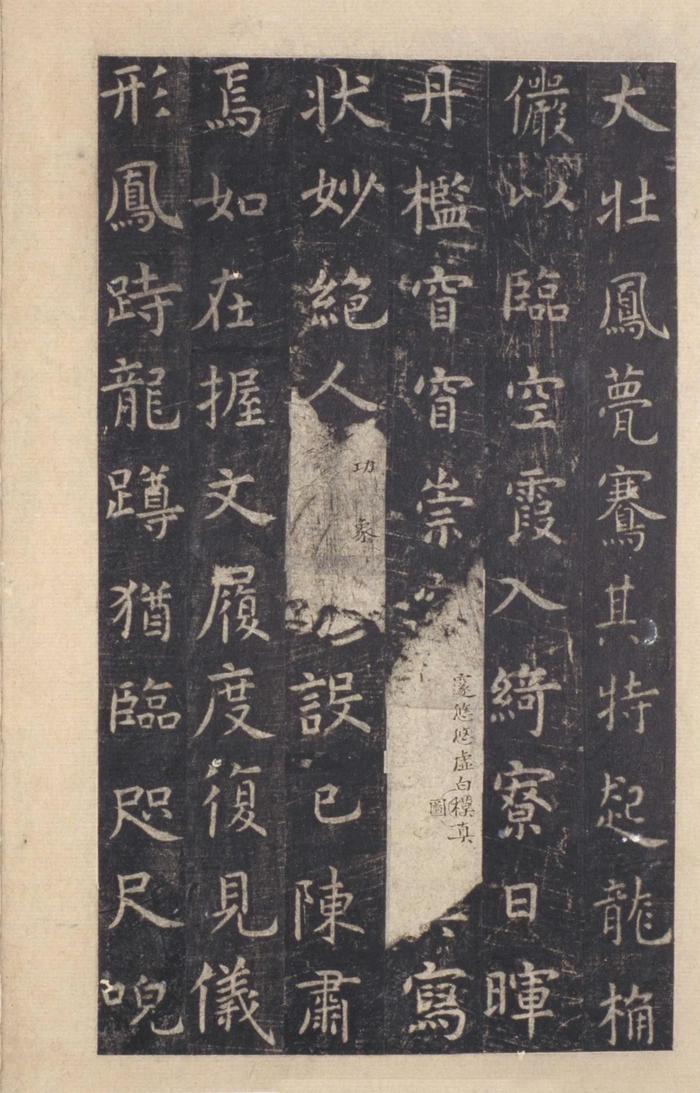 大壯鳳甍鶱其特起龍桷
儼以臨空霞入綺寮日暉
丹檻窅窅崇寫
邃悠悠虛白模真
圖
狀妙絕人設已陳肅
功象
焉如在握文履度復見儀
形鳳跱龍蹲猶臨咫尺